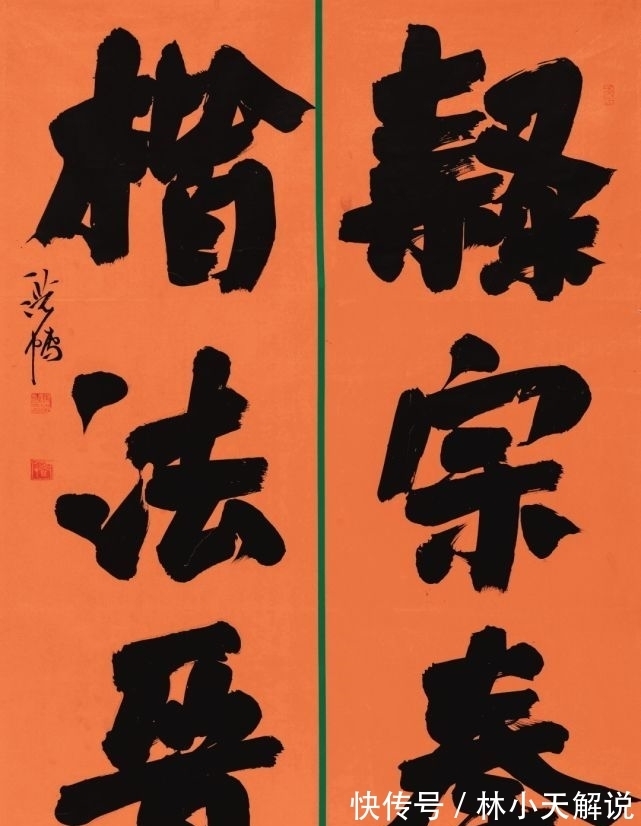 隷宗秦
楷法晋
快传号 / 林小天解说